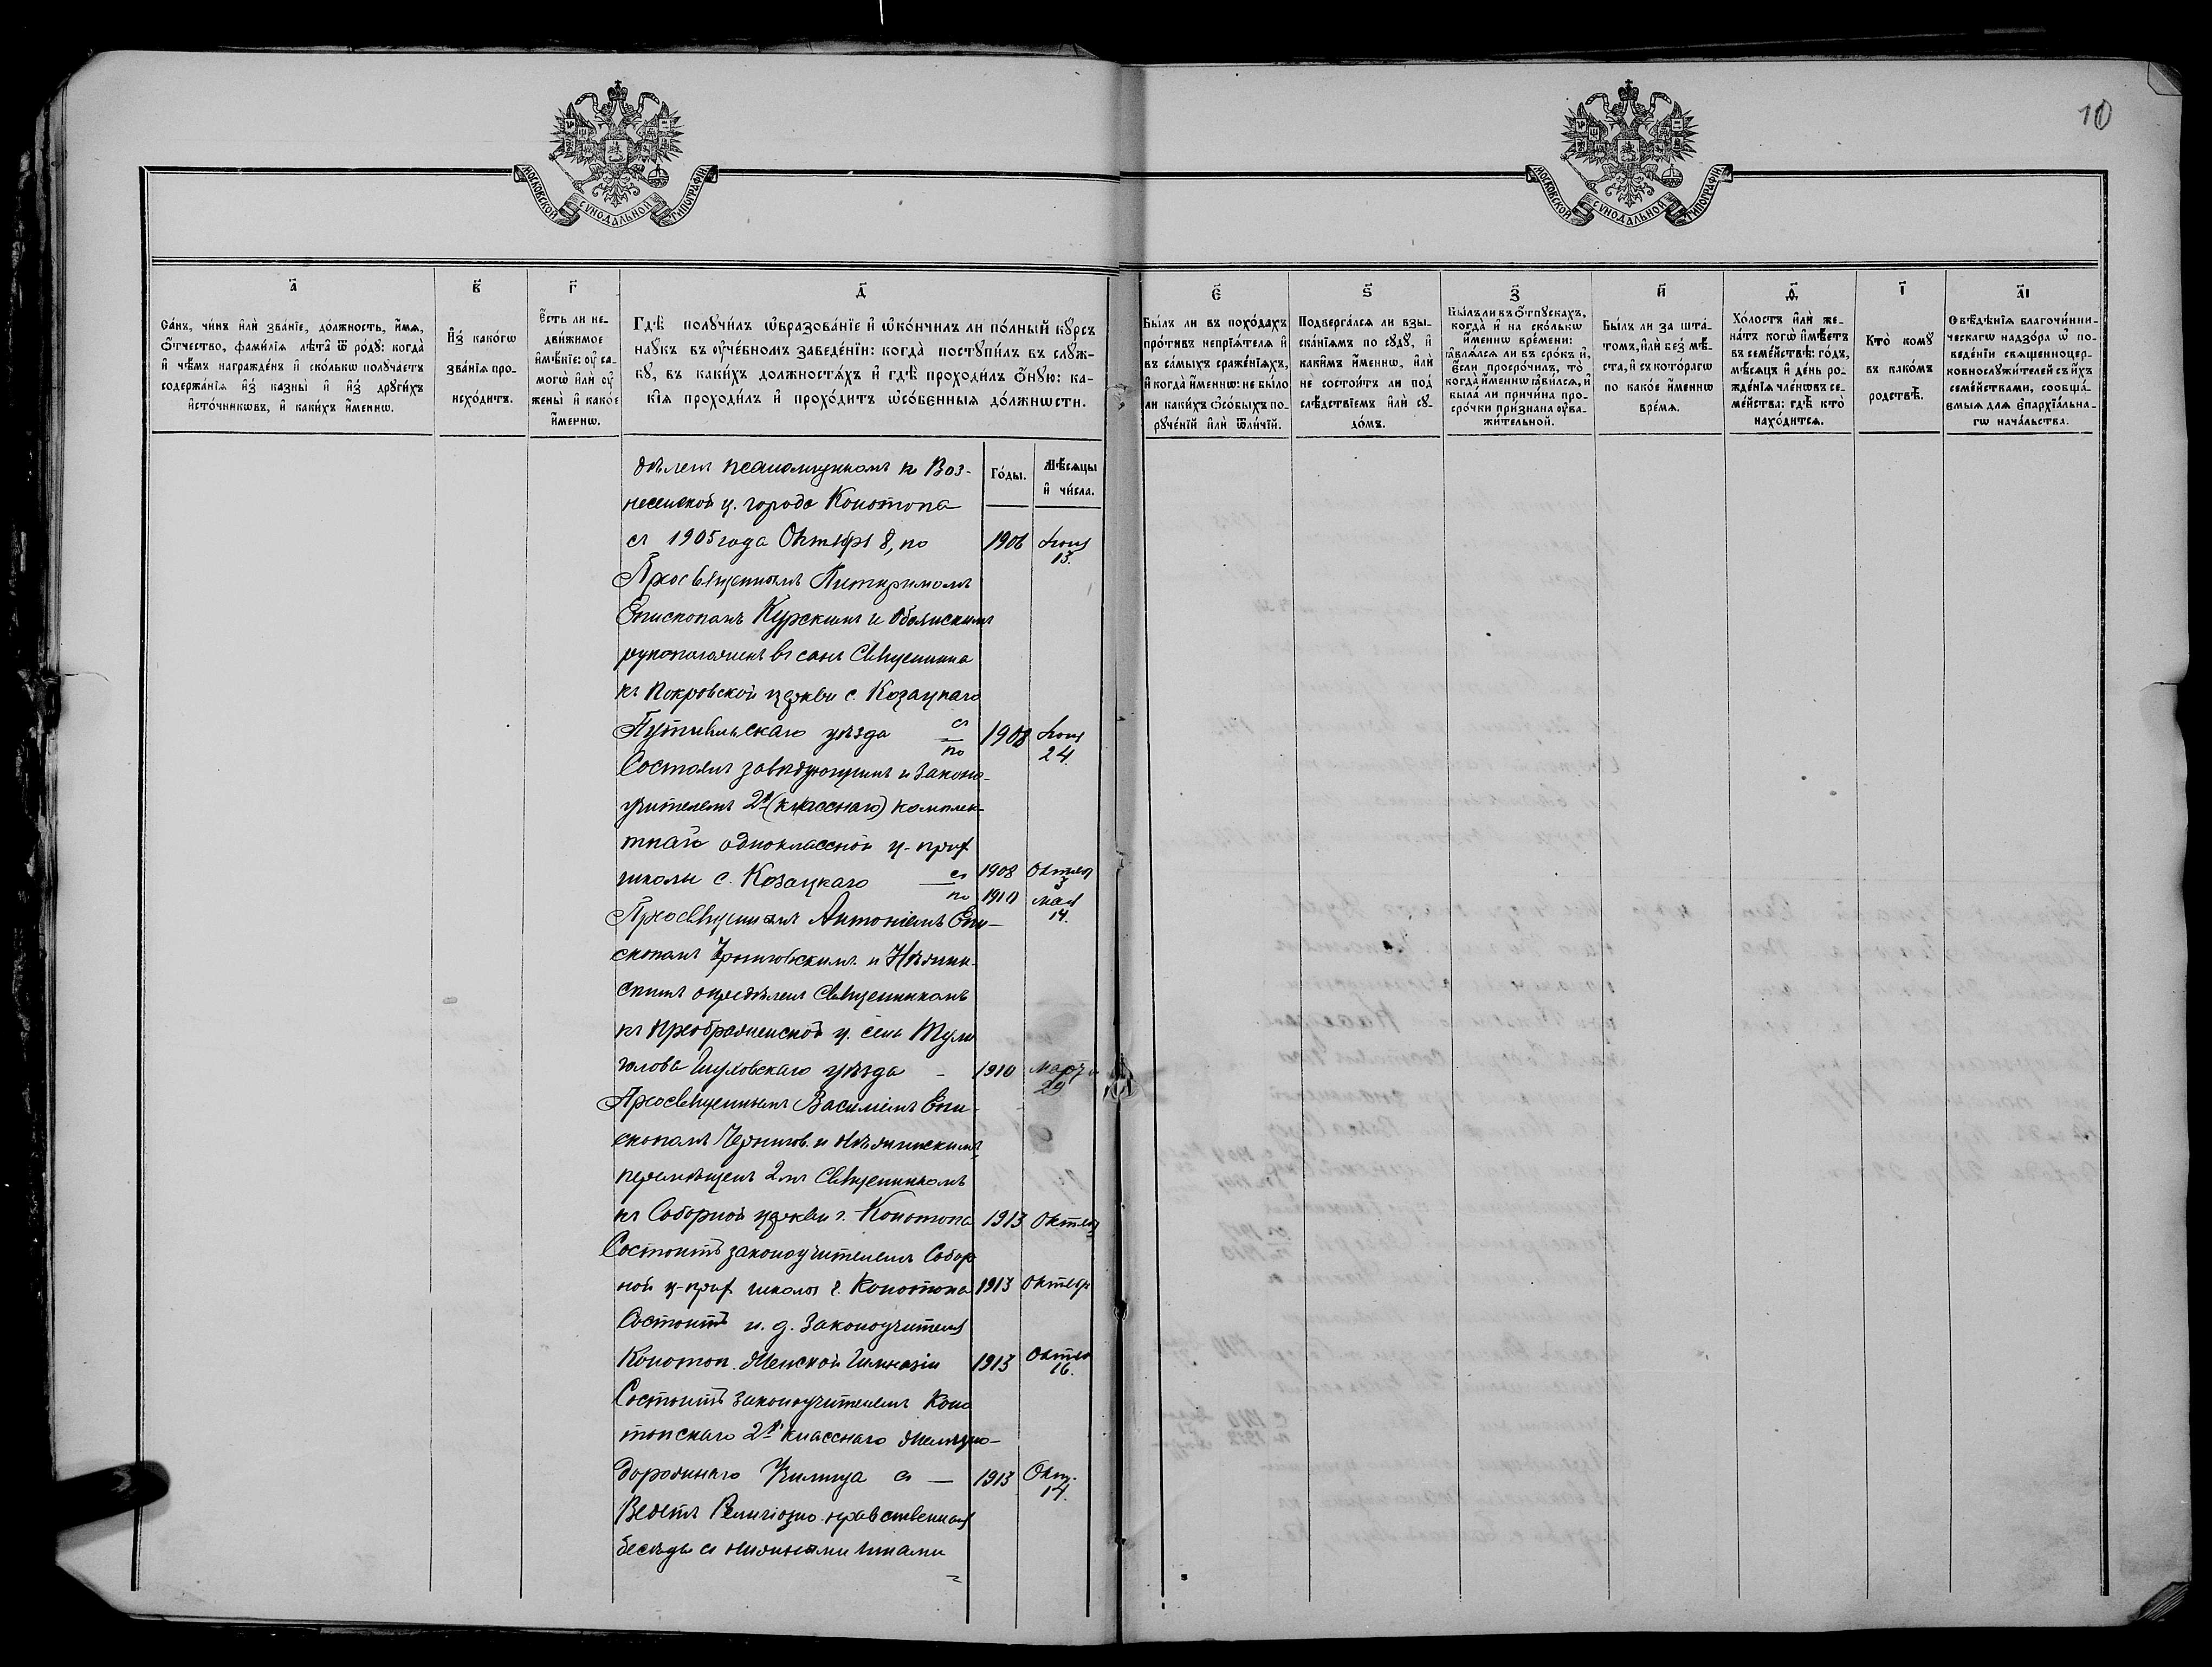 10
МОСКОВСКОЙ СѴНОДАЛЬНОЙ ТИПОГРАФІИ
МОСКОВСКОЙ СѴНОДАЛЬНОЙ ТИПОГРАФІИ
а҃
Са́нъ, чи́нъ и҆лѝ зва́нїе, до́лжность, и҆́мѧ, ѻ҆́тчество, фамѝлїѧ лѣ́та ѿ ро́дꙋ: когда̀ и҆ чѣ́мъ награжде́нъ и҆ ско́лькѡ полꙋча́етъ содержа́нїѧ и҆з̾ казны̀ и҆ и҆з̾ дрꙋги́хъ и҆сто́чникѡвъ, и҆ каки́хъ и҆́меннѡ.
в҃
И҆з̾ како́гѡ зва́нїѧ происхо́дитъ.
г҃
Е҆́сть ли недви́жимое и҆мѣ́нїе: ᲂу҆ самогѡ̀ и҆лѝ ᲂу҆ жены̀ и҆ како́е и҆́меннѡ.
д҃
Гдѣ̀ полꙋчи́лъ ѡ҆бразова́нїе и҆ ѡ҆ко́нчилъ ли по́лный кꙋ́рсъ наꙋ́къ въ ᲂу҆че́бномъ заведе́нїи: когда̀ постꙋпи́лъ въ слꙋ́жбꙋ, въ каки́хъ должностѧ́хъ и҆ гдѣ̀ проходи́лъ ѻ҆́нꙋю: какі́ѧ проходи́лъ и҆ прохо́дитъ ѡ҆со́бенныѧ до́лжнѡсти.
Го́ды.
Мѣ́сѧцы и҆ чи́сла.
є҃
Бы́лъ ли въ похо́дахъ про́тивъ непрїѧ́телѧ и҆ въ са́мыхъ сраже́нїѧхъ, и҆ когда̀ и҆́меннѡ: не бы́ло ли каки́хъ ѻ҆со́быхъ порꙋче́нїй и҆лѝ ѿли́чїй.
ѕ҃
Подверга́лсѧ ли взыска́нїѧмъ по сꙋдꙋ̀, и҆ каки́мъ и҆́меннѡ, и҆лѝ не состои́тъ ли под̾ слѣ́дствїемъ и҆лѝ сꙋдо́мъ.
з҃
Бы́лъ ли въ ѻ҆́тпꙋскахъ, когда̀ и҆ на ско́лькѡ и҆́меннѡ вре́мени: ꙗ҆влѧ́лсѧ ли въ сро́къ и҆, є҆́сли просро́чилъ, то̀ когда̀ и҆́меннѡ ꙗ҆ви́лсѧ, и҆ была̀ ли причи́на просро́чки при́знана ᲂу҆важи́тельной.
и҃
Бы́лъ ли за шта́томъ, и҆лѝ без̾ мѣ́ста, и҆ съ кото́рагѡ по како́е и҆́меннѡ вре́мѧ.
ѳ҃
Хо́лостъ и҆лѝ жена́тъ когѡ̀ и҆мѣ́етъ въ семе́йствѣ: го́дъ, мѣ́сѧцъ и҆ де́нь рожде́нїѧ чле́нѡвъ семе́йства: гдѣ̀ кто̀ нахо́дитсѧ.
і҃
Кто̀ комꙋ̀ въ како́мъ родствѣ̀.
а҃і
Свѣ́дѣнїѧ благочи́нническагѡ надзо́ра ѡ҆ поведе́нїи свѧщенноцерковнослꙋжи́телей съ и҆́хъ семе́йствами, сообща́емыѧ для є҆парх́їа́льнагѡ нача́льства.
дѣленъ псаломщикомъ къ Воз-
несенской ц. города Конотопа
съ 1905 года Октября 8, по 1906 Іюня 13.
Преосвященнымъ Питиримомъ
Епископомъ Курскимъ и Обоянскимъ
рукоположенъ въ санъ Священника
къ Покровской церкви с. Козацкаго
Путивльскаго уѣзда съ по 1908 Іюня 24.
Состоялъ завѣдующимъ и законо-
учителемъ 2х (класснаго) комплек-
тной одноклассной ц.-прих.
школы с. Козацкаго съ 1908 Октяб 3
по 1910 мая 14.
Преосвященнымъ Антоніемъ Епи-
скопомъ Черниговскимъ и Нѣжин-
скимъ опредѣленъ Священникомъ
къ Преображенской ц. села Тули-
голова Глуховскаго уѣзда - 1910 Марта 29
Преосвященнымъ Василіемъ Епи-
скопомъ Чернигов. и Нѣжинскимъ,
перемѣщенъ 2мъ Священникомъ
къ Соборной церкви г. Конотопа 1913 Октяб
Состоитъ законоучителемъ Собор
ной ц-прих школы г. Конотопа 1913 Октябр
Состоитъ и. д. Законоучителя
Конотоп. Женской Гимназіи 1913 Октяб 16.
Состоитъ законоучителемъ Коно
топскаго 2хъ класснаго Желѣзно-
дорожнаго Училища съ — 1913 Окт. 14.
Ведетъ Религіозно-нравственныя
бесѣды съ нижними чинами